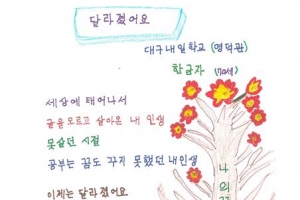 달라졌어요
대구내일학교 (명덕관)
한금자 (70세)
세상에 태어나서
글을모르고 살아온 내 인생
못살던 시절
공부는 꿈도 꾸지 못했던 내인생
이제는 달라졌어요
나의꿈